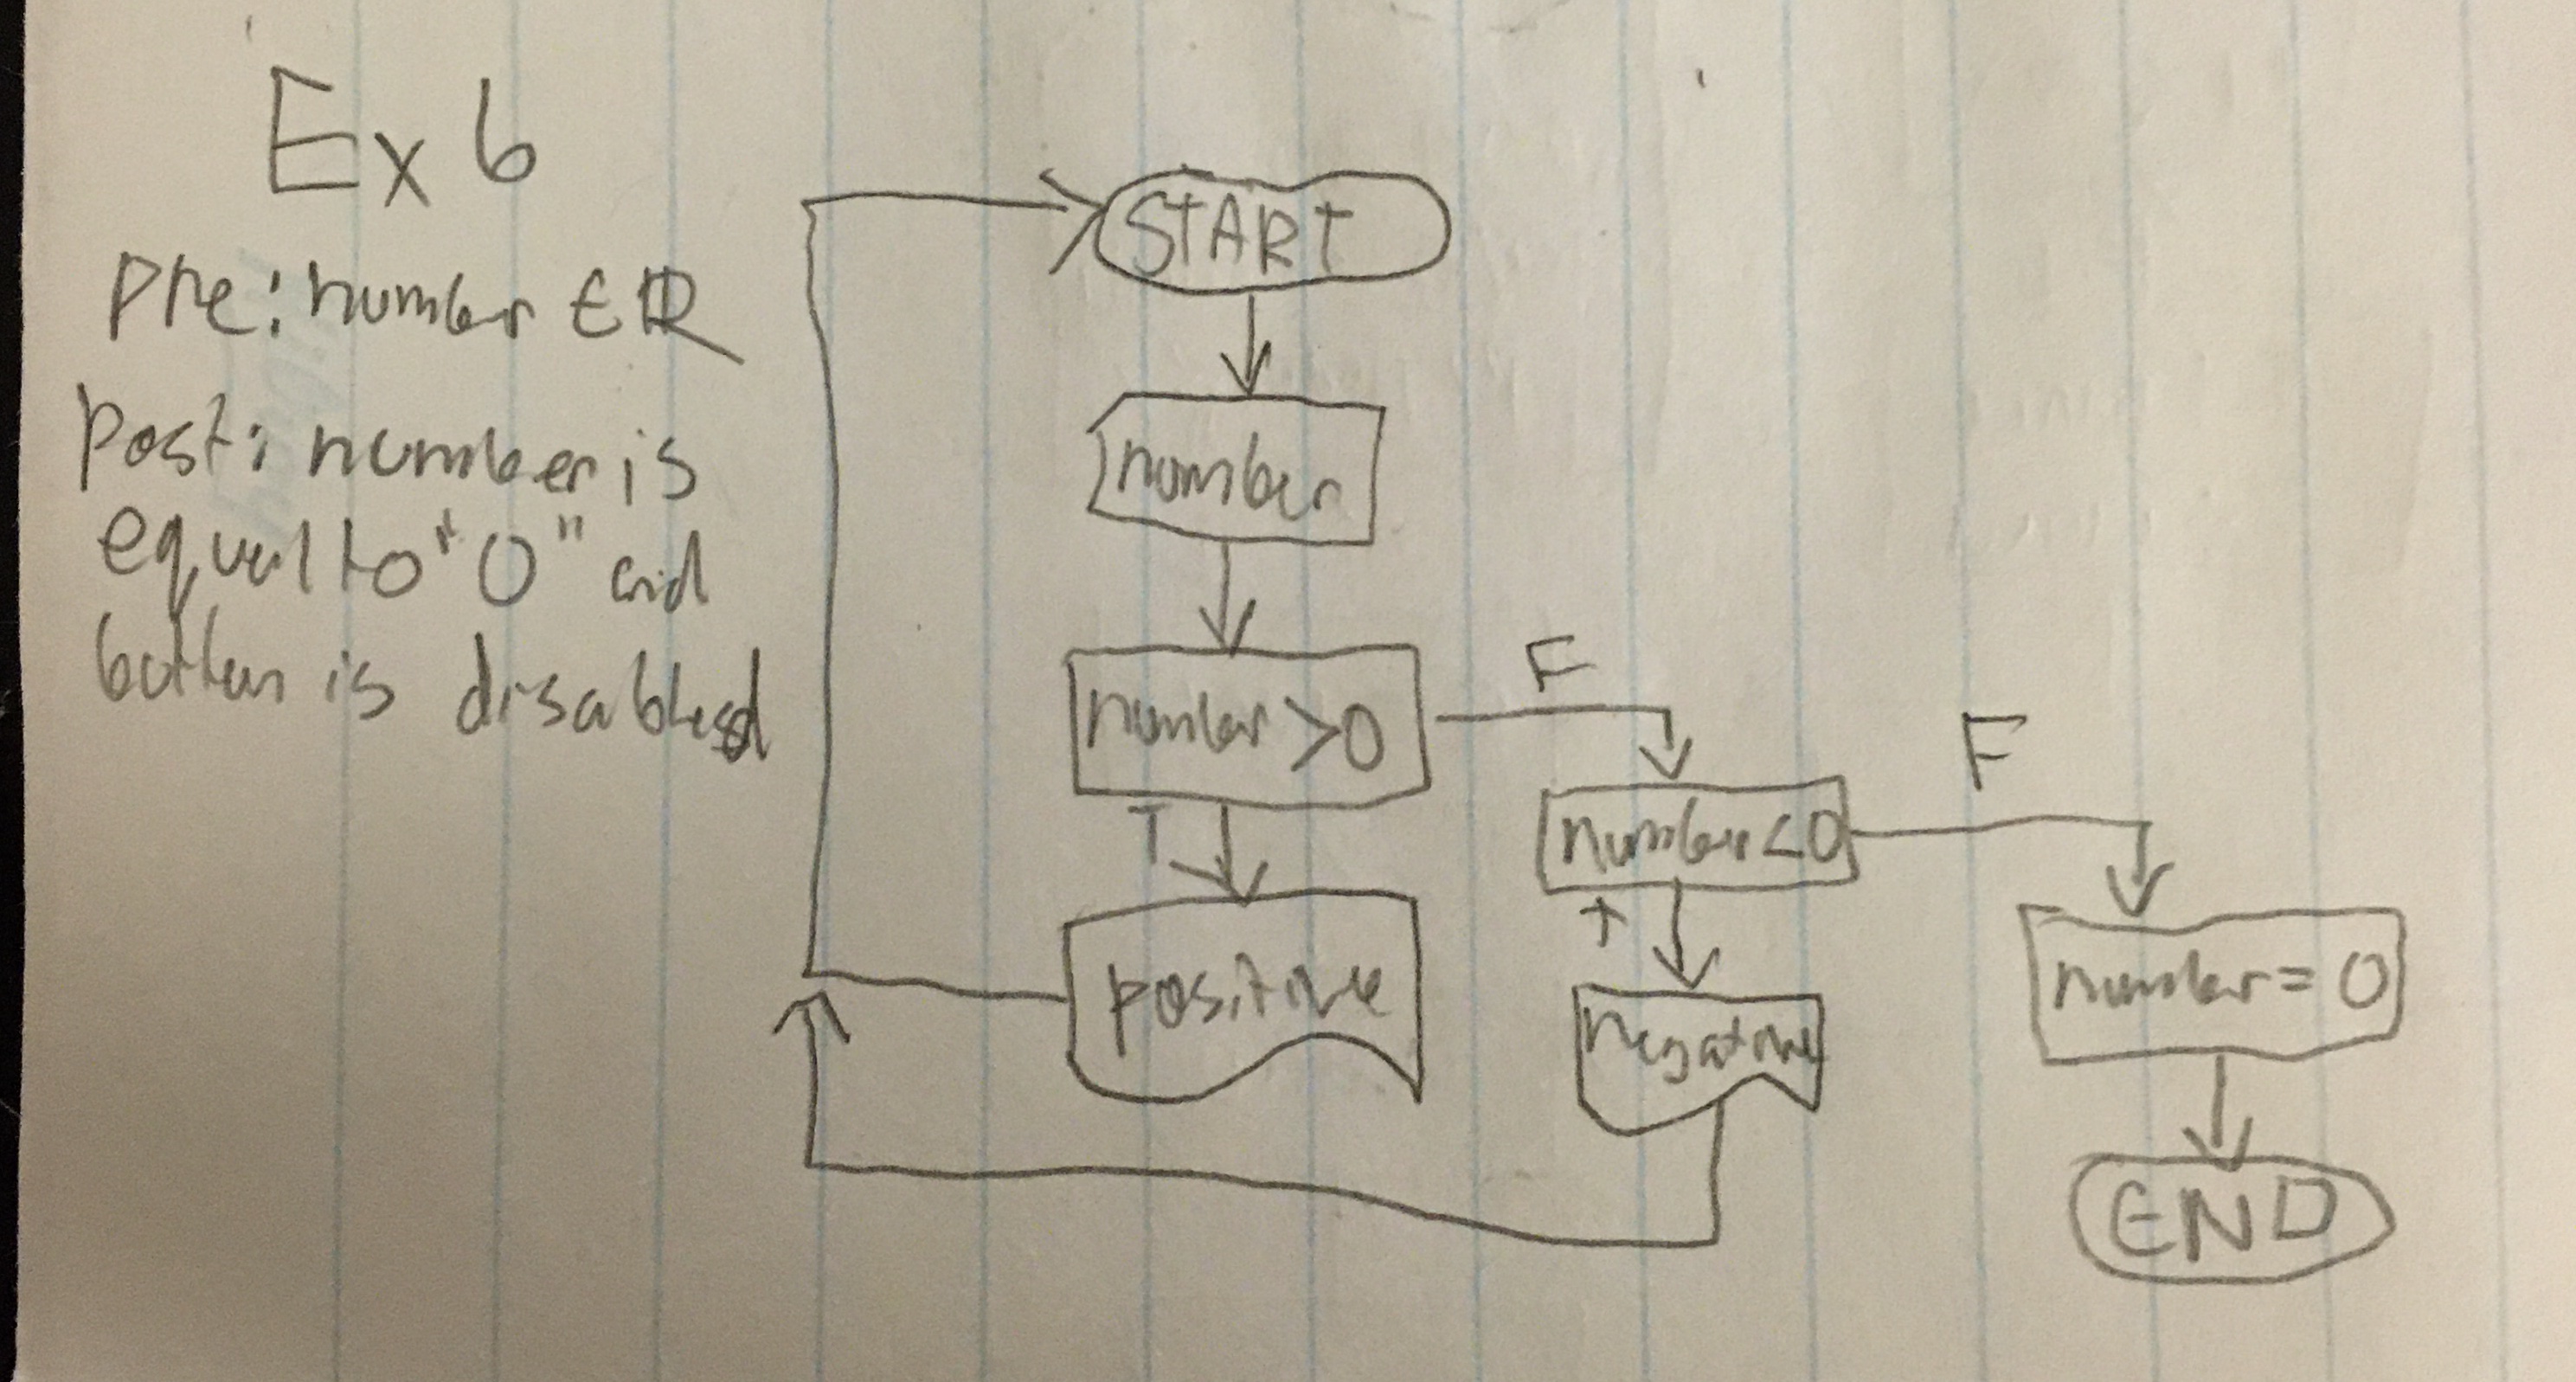 Ex 6
pre: number ∈ ℝ
post: number is
equal to "0" and
button is disabled
START
number
number > 0
F
T
number < 0
F
T
positive
negative
number = 0
END